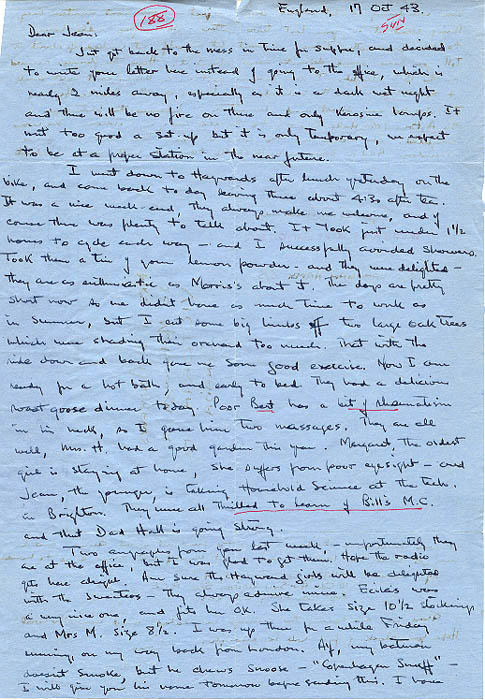 188
England, 17 Oct 43.
Dear Jean:
Just got back to the mess in time for supper, and decided
to write your letter here instead of going to the office, which is
nearly 2 miles away, especially as it is a dark wet night
and there will be no fire on there and only kerosine lamps. It
isn't too good a set-up but it is only temporary, we expect
to be at a proper station in the near future.
I went down to Haywards after lunch yesterday on the
bike, and came back to day leaving there about 4:30 after tea.
It was a nice week-end, they always make me welcome, and of
course there was plenty to talk about. It took just under 1 1/2
hours to cycle each way – and I successfully avoided showers.
Took them a tin of your lemon powder and they were delighted –
they are as enthusiastic as Morris's about it. The days are pretty
short now so we didn't have as much time to work as
in Summer, but I cut some big limbs off two large oak trees
which were shading their orchard too much. That with the
ride down and back gave me some good exercise. Now I am
ready for a hot bath, and early to bed. They had a delicious
roast goose dinner today. Poor Bert has a bit of rheumatism
in his neck, so I gave him two massages. They are all
well, Mrs. H. had a good garden this year. Margaret the oldest
girl is staying at home, she suffers from poor eyesight – and
Jean, the younger, is taking Household Science at the tech.
in Brighton. They were all thrilled to learn of Bill's M.C.
and that Dad Hall is going strong.
Two airgraphs from you last week, – unfortunately they
are at the office, but I was glad to get them. Hope the radio
gets here alright. Am sure the Hayward girls will be delighted
with the sweaters – they always admire mine. Eccles was
a very nice one, and fits him OK. She takes size 10 1/2 stockings
and Mrs M. size 8 1/2. I was up there for a while Friday
evening, on my way back from London. Alf, my batman
doesn't smoke, but he chews snoose – "Copenhagen Snuff" –
I will give you his name tomorrow before sending this. I have